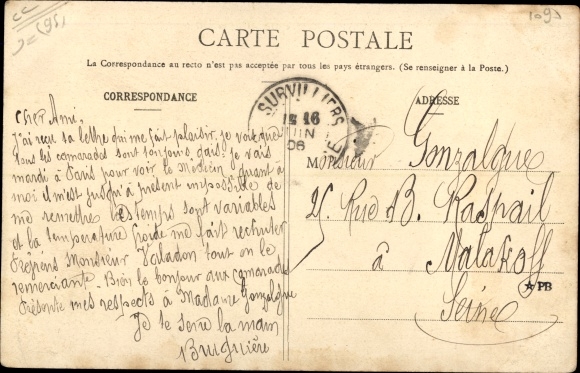 CC
(95)
1092
CARTE POSTALE
La Correspondance au recto n'est pas acceptée par tous les pays étrangers. (Se renseigner à la Poste.)
CORRESPONDANCE
ADRESSE
SURVILLIERS
16
JUIN
06
Cher Ami,
J'ai reçu sa lettre qui me fait plaisir, je vois que
tous les camarades sont toujours gais. Je vais
mardi à Paris pour voir le Médecin quant à
moi il m'est jusqu'à présent impossible de
me remettre les temps sont variables
et la température froide me fait
Monsieur Valladon tout en le
remerciant. Bien le bonjour aux camarades
Présente mes respects à Madame Gonzalgue
Je te serre la main
Bruguière
Monsieur Gonzalgue
25 Rue B. Raspail
à Malakoff
Seine
PB